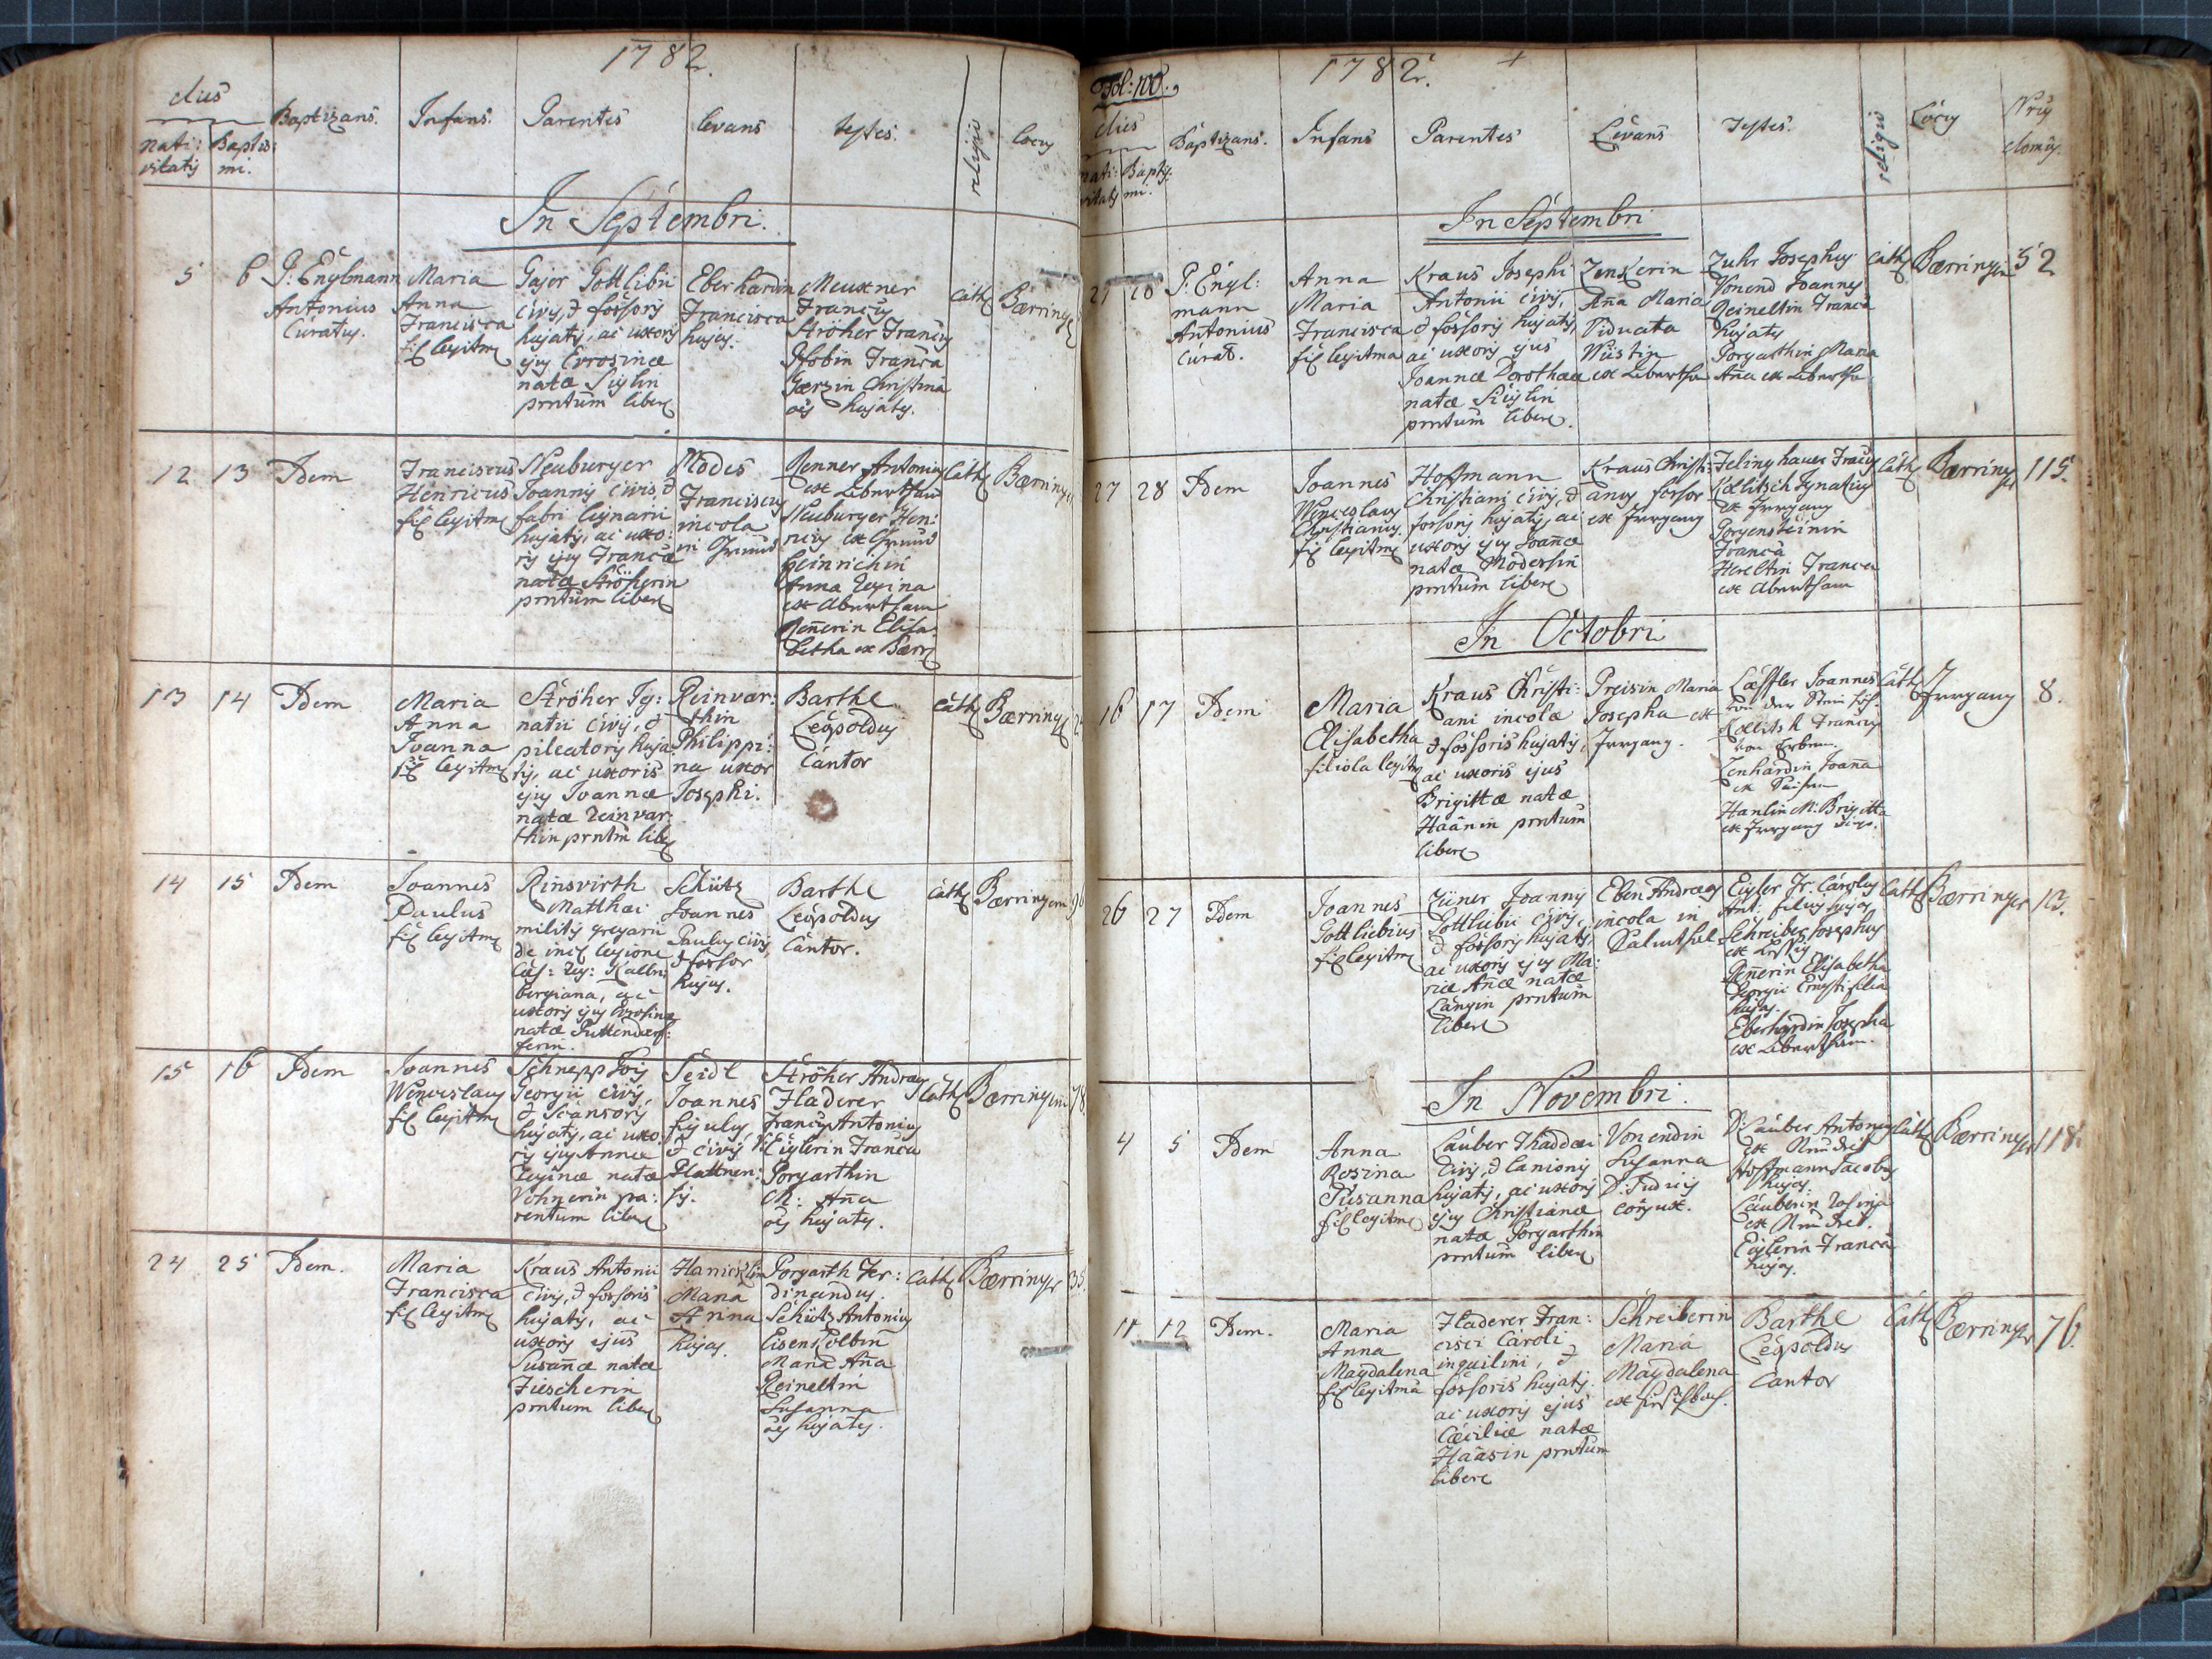 1782.
dies
nati: Baptis:
vitatis mi.
Baptizans. Infans. Parentes Levans testes. religio locus
In Septembri.
5 6
P. Englmann
Antonius
Curatus.
Maria
Anna
Francisca
fil legitma
Gajer Gottlibii
civis, & fossoris
hujatis, ac uxoris
ejus Evrosinæ
natæ Siglin
prntum libera
Eberhardin
Francisca
hujas.
Meuxner
Francus
Ströher Francus
Franca
Gærzin Christina
oes hujates.
Cath
Bærring
12 13 Idem
Franciscus
Henricus
fil legitms
Neuburger
Joannis civis, &
fabri lignarii
hujatis, ac uxo:
ris ejus Francæ
natæ Ströherin
prntum libera
Modes
Franciscus
incola
in Gmünd
Renner Antonius
ex Abertham
Neuburger Hen:
ricus ex Gmünd
Heinrichin
Anna Regina
ex Abertham
Rennerin Elisa:
betha ex Bærr
Cath
Bærring
13 14 Idem
Maria
Anna
Joanna
fil legitma
Ströher Ig:
natii civis, &
pileatoris huja:
tis, ac uxoris
ejus Joannæ
natæ Reinwar:
thin prntm libera
Reinwar:
thin
Philippi:
na uxor
Josephi.
Barthl
Leopoldus
Cantor
Cath
Bærring
14 15 Idem
Joannes
Paulus
fil legitms
Rinsvirth
Matthæi
militis gregarii
de incl legione
Cæs: Reg: Kalln:
bergiana, ac
uxoris ejus Evrosinæ
natæ Puttendorf:
ferin.
Schütz
Joannes
Paulus civis
& fossor
hujas.
Barthl
Leopoldus
Cantor.
Cath
Bærringen
96
15 16 Idem
Joannes
Wenceslaus
fil legitms
Schnepp Jois
Georgii civis,
& Scansoris
hujatis, ac uxo:
ris ejus Annæ
Reginæ natæ
Vohnerin pa:
rentum libera
Seidl
Joannes
figulus
& civis
Plattnen:
sis.
Ströher Andreas
Haderer
Francus Antonius
Eiglerin Franca
Porgarthin
M: Aña
oes hujates.
Cath
Bærringen
78
24 25 Idem.
Maria
Francisca
fil legitma
Kraus Antonii
civis, & fossoris
hujatis, ac
uxoris ejus
Susañæ natæ
Fiescherin
prntum libera
Hanicklin
Maria
Anna
hujas.
Porgarth Fer:
dinandus.
Schütz Antonius
Eisenkolbin
Maria Aña
Reineltin
Susanna
oes hujates.
Cath
Bærringen
35
Fol: 100.
1782.
dies
nati: Baptis:
vitatis mi.
Baptizans. Infans Parentes Levans Testes. religio Locus Nrus
domus.
In Septembri
27 28
P. Engl:
mann
Antonius
Curat.
Anna
Maria
Francisca
fil legitma
Kraus Josephi
Antonii civis,
& fossoris hujatis,
ac uxoris ejus
Joannæ Dorothææ
natæ Siglin
prntum libera.
Zenkerin
Aña Maria
Viduata
Wüstin
ex Abertham
Zuhr Josephus
Vonend Joannes
Reineltin Franca
hujates
Porgarthin Maria
Aña ex Abertham
Cath
Bærringen
52
27 28 Idem
Joannes
Wenceslaus
Christianus
fil legitms
Hoffmann
Christiani civis, &
fossoris hujatis, ac
uxoris ejus Joañæ
natæ Modessin
prntum libera
Kraus Christi:
anus fossor
ex Irrgang
Felinghauer Francus
Kollitsch Ignatius
ex Irrgang
Porgensteinin
Franca
Hereltin Franca
ex Abertham
Cath
Bærringer
115.
In Octobri
16 17 Idem
Maria
Elisabetha
filiola legitma
Kraus Christi:
ani incolæ
& fossoris hujatis,
ac uxoris ejus
Brigittæ natæ
Haänin prntum
libera
Preisin Maria
Josepha ex
Irrgang.
Læffler Joannes
von der Steinhöh
Kollitsch Francus
Lenhardin Joaña
Hanlin M: Brigitta
ex Irrgang
Cath
Irrgang
8.
26 27 Idem
Joannes
Gottliebius
fil legitms
Züner Joannis
Gottliebii civis,
& fossoris hujatis,
ac uxoris ejus Ma:
riæ Añæ natæ
Langin prntum
libera
Eben Andreas
incola in
Salmthal
Eigler Fr: Carolus
Ant: filius hujas
Schreiber Josephus
Reñerin Elisabetha
Georgii Ernesti filia
hujas.
Eberhardin Josepha
ex Abertham.
Cath
Bærringer
10.
In Novembri.
4 5 Idem
Anna
Rosina
Susanna
fil legitma
Lauber Thaddæi
civis, & lanionis
hujatis, ac uxoris
ejus Christianæ
natæ Porgarthin
prntum libera
Vonendin
Susanna
D: Judicis
conjux.
D: Lauber Antonius
ex Neudek
Hoffmann Jacobus
hujas.
Lauberin Rosina
ex Neudek.
Eiglerin Franca
hujas.
Cath
Bærringer
118.
11 12 Idem.
Maria
Anna
Magdalena
fil legitma
Haderer Fran:
cisci Caroli
inquilini, &
fossoris hujatis.
ac uxoris ejus
Cæciliæ natæ
Haäsin prntum
libera
Schreiberin
Maria
Magdalena
Barthl
Leopoldus
Cantor
Cath
Bærringer
76.